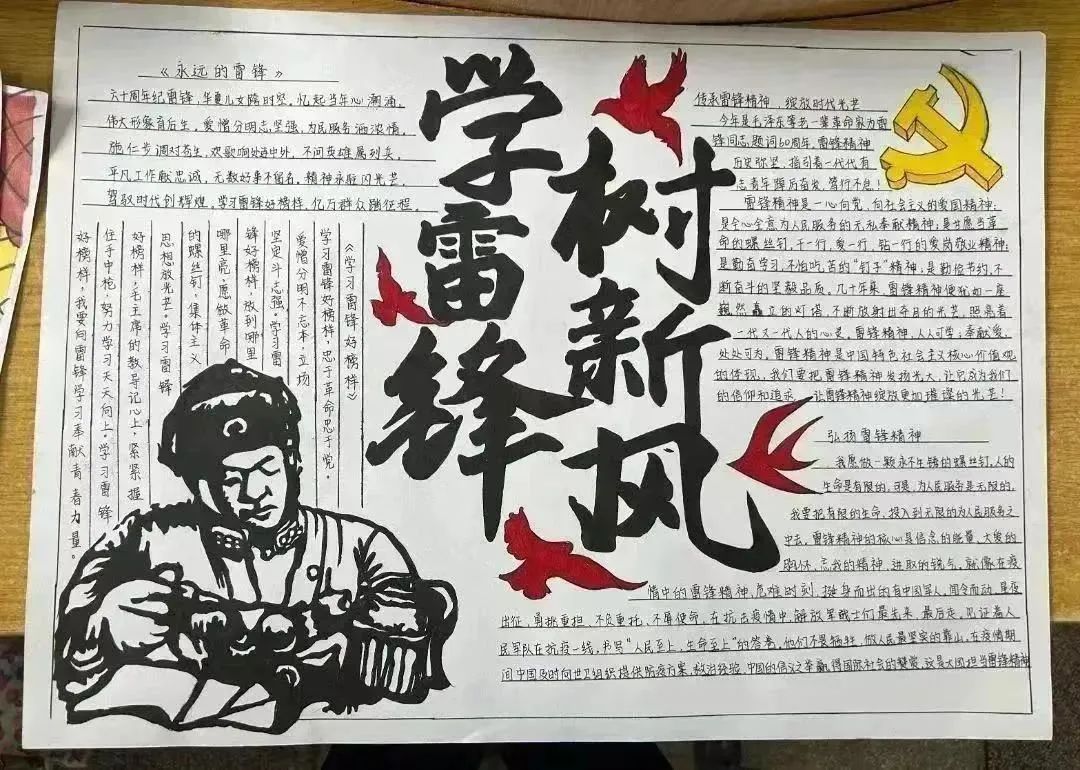 《永远的雷锋》
六十周年纪雷锋，华夏儿女随时坚。忆起当年心潮涌，
伟大形象育后生，爱憎分明志坚强，为民服务洒浓情。
施仁步调对苍生，欢歌响处海中外，不问英雄属列兵。
平凡工作献忠诚，无数好事不留名。精神永驻闪光芒，
驾驭时代创辉煌。学习雷锋好榜样，亿万群众踏征程。
学雷锋
树新风
《学习雷锋好榜样》
学习雷锋好榜样，忠于革命忠于党。
爱憎分明不忘本，立场
坚定斗志强。学习雷
锋好榜样，放到哪里
哪里亮，愿做革命
的螺丝钉，集体主义
思想放光芒。学习雷锋
好榜样，毛主席的教导记心上，紧紧握
住手中枪，努力学习天天向上。学习雷锋
好榜样，我要向雷锋学习奉献青春力量。
传承雷锋精神，绽放时代光芒
今年是毛泽东等老一辈革命家为雷
锋同志题词60周年，雷锋精神
历史弥坚，指引着一代代有
志青年踔厉奋发，笃行不怠！
雷锋精神是一心向党，向社会主义的爱国精神；
是全心全意为人民服务的无私奉献精神；是甘愿当革
命的螺丝钉，干一行，爱一行，钻一行的爱岗敬业精神；
是勤奋学习，不怕吃苦的“钉子”精神；是勤俭节约，不
断奋斗的坚毅品质。几十年来，雷锋精神便犹如一座
巍然矗立的灯塔，不断放射出夺目的光芒，照亮着
一代又一代人的心灵。雷锋精神，人人可学；奉献爱，
处处可为，雷锋精神是中国特色社会主义核心价值观
的体现，我们要把雷锋精神发扬光大，让它成为我们
的信仰和追求，让雷锋精神绽放更加璀璨的光芒！
弘扬雷锋精神
我愿做一颗永不生锈的螺丝钉，人的
生命是有限的，可是，为人民服务是无限的，
我要把有限的生命，投入到无限的为人民服务之
中去，雷锋精神的核心是信念的能量、大爱的
胸怀、忘我的精神、进取的锐气。就像在疫
情中的雷锋精神，危难时刻，挺身而出的有中国军人，闻令而动，星夜
出征，勇挑重担，不负重托，不辱使命，在抗击疫情中，解放军战士们最先来，最后走，见证着人
民军队在抗疫一线，书写“人民至上，生命至上”的答卷，他们不畏牺牲，做人民最坚实的靠山，在疫情期
间中国及时向世卫组织提供防疫方案，救治经验，中国的信义之举赢得国际社会的赞赏，这是大国担当雷锋精神